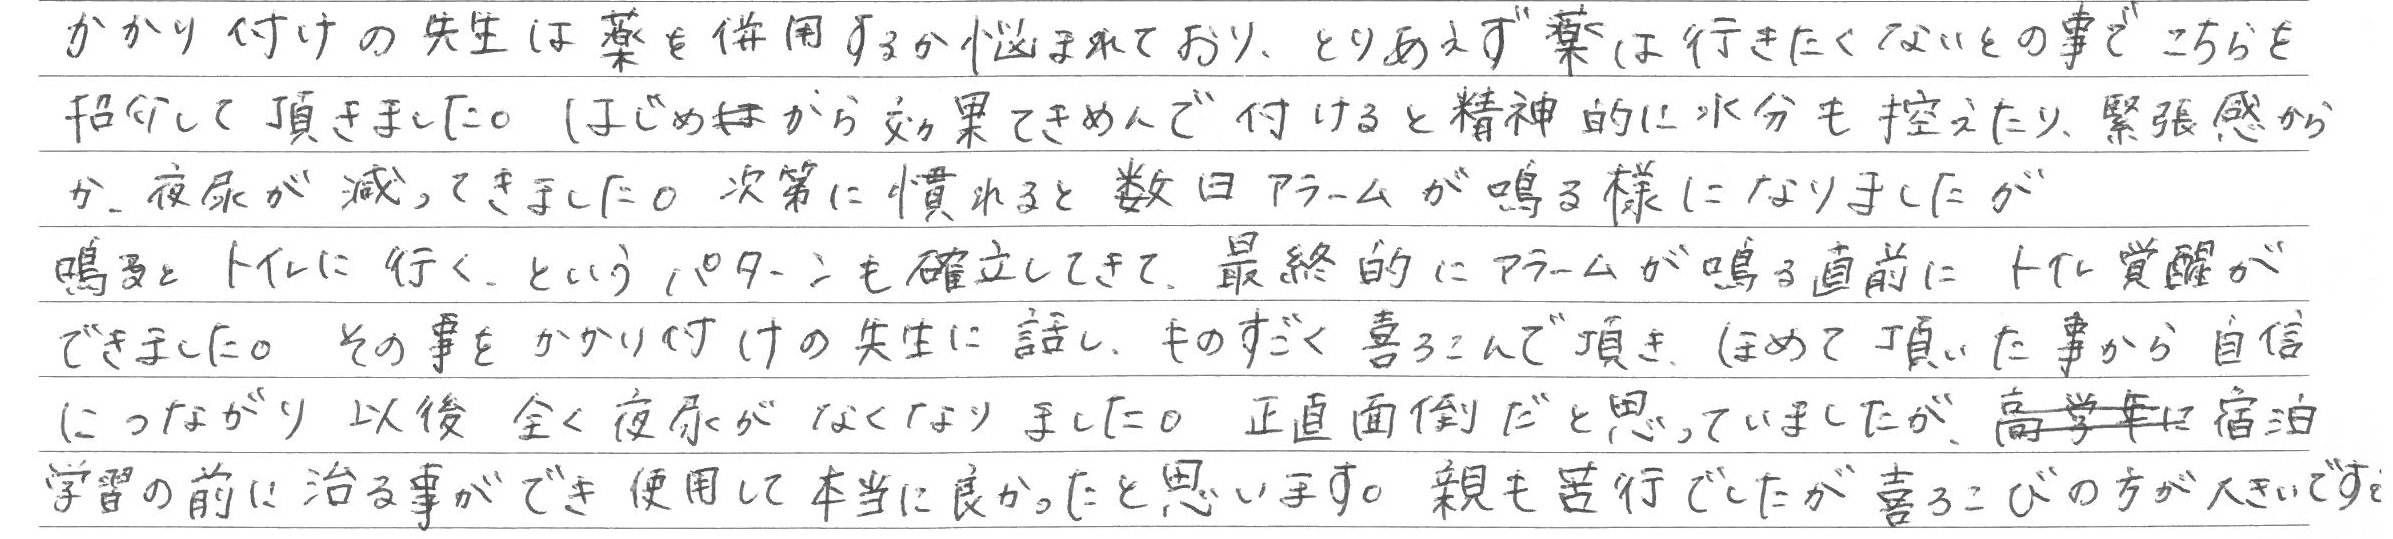 かかり付けの先生は薬を併用するか悩まれており、とりあえず薬は行きたくないとの事でこちらを
紹介して頂きました。はじめから効果てきめんで付けると精神的に水分も控えたり、緊張感から
か、夜尿が減ってきました。次第に慣れると数日アラームが鳴る様になりましたが
鳴るとトイレに行く、というパターンも確立してきて、最終的にアラームが鳴る直前にトイレ覚醒が
できました。その事をかかり付けの先生に話し、ものすごく喜ろこんで頂き、ほめて頂いた事から自信
につながり以後全く夜尿がなくなりました。正直面倒だと思っていましたが、高学年に宿泊
学習の前に治る事ができ使用して本当に良かったと思います。親も苦行でしたが喜ろこびの方が大きいです。